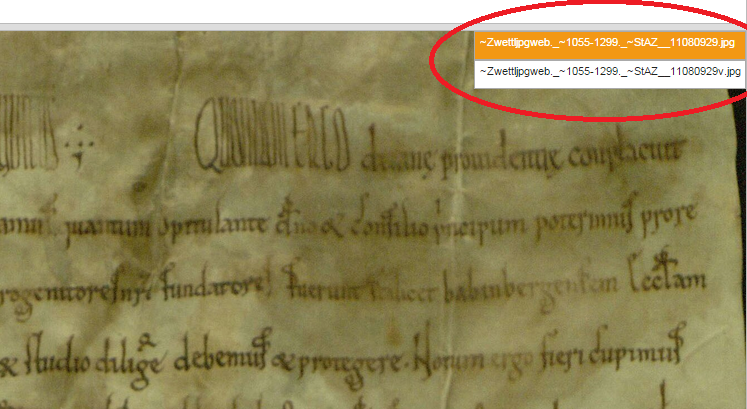 ~Zwettljpgweb._~1055-1299._~StAZ__11080929.jpg
~Zwettljpgweb._~1055-1299._~StAZ__11080929v.jpg
QUONIAM ERGO divinę providentię complacuit
quantum opitulante dn̄o & consilio pncipum poterimus
fundatores fuerunt scilicet babinbergensem eccl̄am
& studio diligē debemus & protegere. Horum ergo fieri cupimus